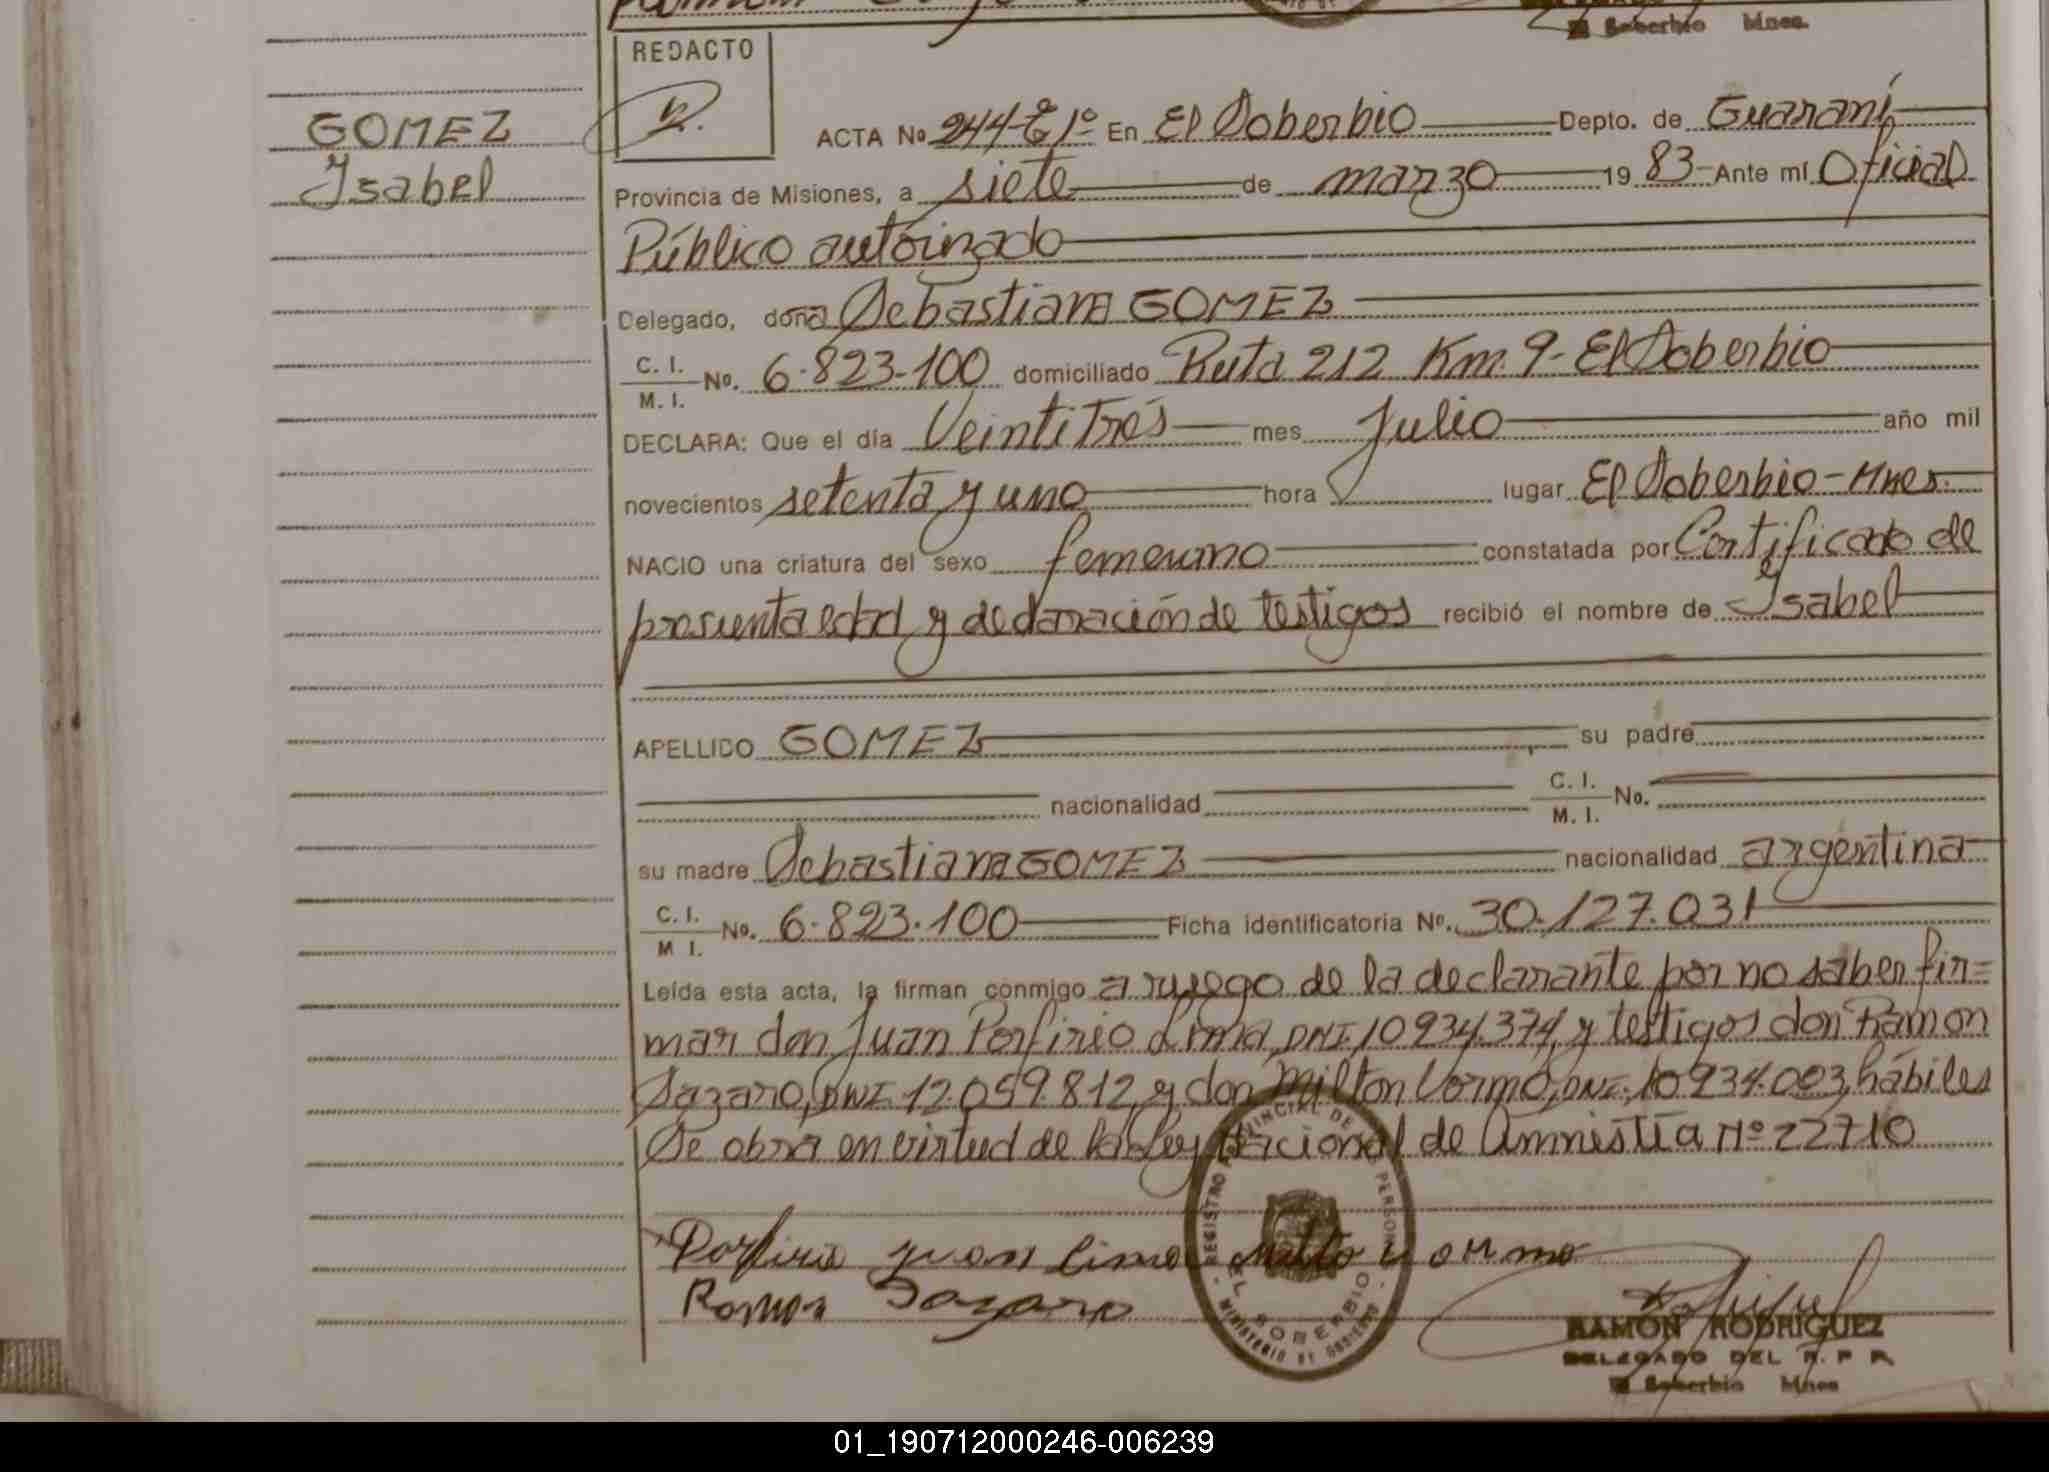 Soberbio Mnes.
REDACTO
GOMEZ
Isabel
ACTA No 244-Tº 1º En El Soberbio Depto. de Guaraní
Provincia de Misiones, a siete de marzo 19 83 Ante mí Oficial
Público autorizado
Delegado, doña Sebastiana GOMEZ
C. I.
M. I. No. 6.823.100 domiciliado Ruta 212 Km. 9- El Soberbio
DECLARA: Que el día Veintitrés mes Julio año mil
novecientos setenta y uno hora lugar El Soberbio-Mnes.
NACIO una criatura del sexo femenino constatada por Certificado de
presunta edad y declaración de testigos recibió el nombre de Isabel
APELLIDO GOMEZ su padre
nacionalidad C. I.
M. I. No.
su madre Sebastiana GOMEZ nacionalidad argentina
C. I.
M I. No. 6.823.100 Ficha identificatoria No. 30.127.031
Leída esta acta, la firman conmigo a ruego de la declarante por no saber fir=
mar don Juan Porfirio Lima, DNI. 10934.374, y testigos don Ramon
Sazaro, DNI. 12.059.812, y don Milton Vormo, DNI. 10934.003, hábiles
Se obra en virtud de la Ley Nacional de Amnistía Nº 22710
Porfirio Juan Lima Milto Vormo
Ramon Sazaro
REGISTRO PROVINCIAL DE PERSONAS
EL SOBERBIO
MINISTERIO DE GOBIERNO
RAMON RODRIGUEZ
DELEGADO DEL R. P. P.
El Soberbio Mnes
01_190712000246-006239